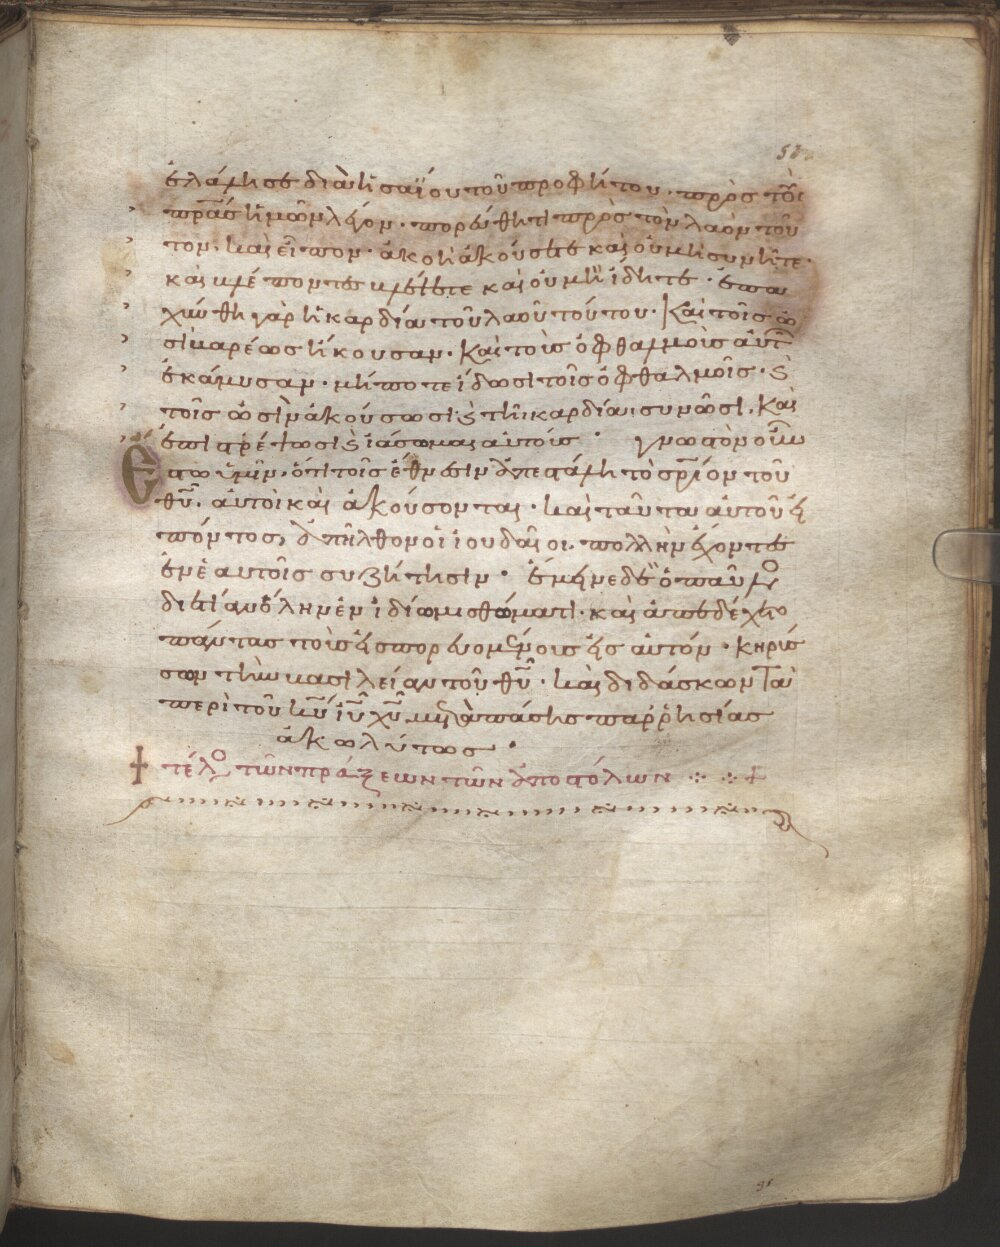 ἐλάλησε διὰ ἡσαΐου τοῦ προφήτου πρὸς τοὺς
πρας ἡμῶν λέγον· πορεύθητι πρὸς τὸν λαὸν τοῦ
τον· καὶ εἶπον· ἀκοὴ ἀκούσετε καὶ οὐ μὴ συνῆτε·
καὶ βλέποντες βλέψετε καὶ οὐ μὴ ἴδητε· ἐπα
χύνθη γὰρ ἡ καρδία τοῦ λαοῦ τούτου· καὶ τοῖς ὠ
σὶ βαρέως ἤκουσαν· καὶ τοὺς ὀφθαλμοὺς αὐτῶν
ἐκάμυσαν· μήποτε ἴδωσι τοῖς ὀφθαλμοῖς· ϗ
τοῖς ὠσὶν ἀκούσωσι· ϗ τῆ καρδία συνῶσι· καὶ
ἐπιστρέψωσι ϗ ἰάσωμαι αὐτούς· γνωστὸν οὖν
ἔστω ὑμῖν· ὅτι τοῖς ἔθνεσιν ἀπεστάλη τὸ σριον τοῦ
θυ· αὐτοὶ καὶ ἀκούσονται· καὶ ταῦτα αὐτοῦ εἰ
πόντος, ἀπῆλθον οἱ ἰουδαῖοι πολλὴν ἔχοντες
ἐν ἑαυτοῖς συζήτησιν· ἔμεινε δὲ ὁ παῦλος
διετίαν ὅλην ἐν ἰδίω μισθώματι· καὶ ἀπεδέχετο
πάντας τοὺς εἰσπορευομένους εἰς αὐτόν· κηρύσ
σων τὴν βασιλείαν τοῦ θυ· καὶ διδάσκων τὰ
περὶ τοῦ κυ ιυ χυ μετὰ πάσης παρρησίας
ἀκωλύτως·
† τέλος τῶν πράξεων τῶν ἀποστόλων